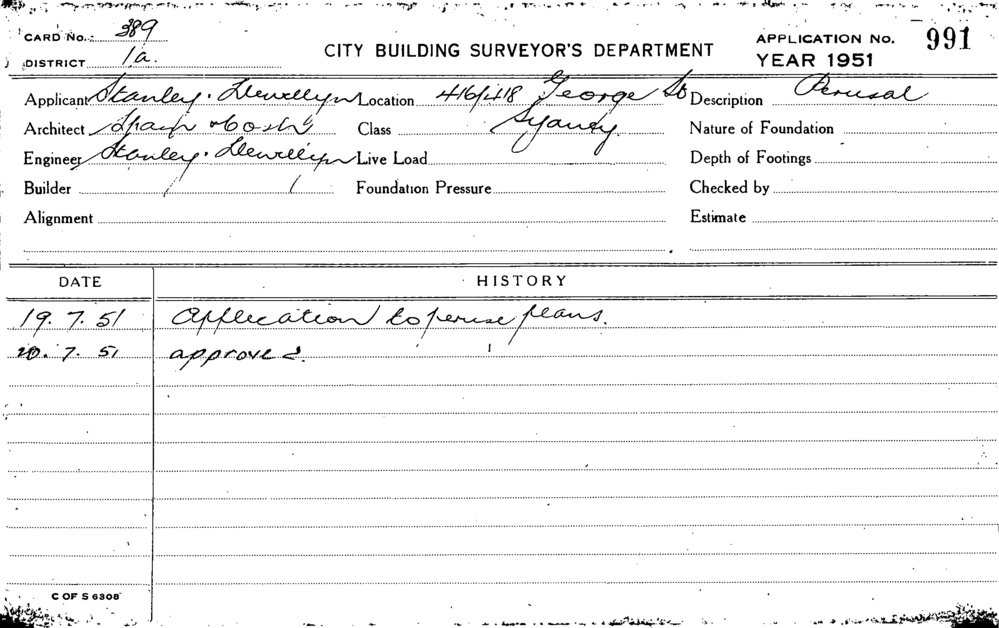 CARD No. 389
DISTRICT 1a.
CITY BUILDING SURVEYOR'S DEPARTMENT
APPLICATION No. 991
YEAR 1951
Applicant Stanley. Llewellyn Location 416/418 George St Description Perusal
Architect Spain & Cosh Class Sydney. Nature of Foundation
Engineer Stanley. Llewellyn Live Load Depth of Footings
Builder Foundation Pressure Checked by
Alignment Estimate
DATE HISTORY
19.7.51 Application to peruse plans.
20.7.51 approved
C OF S 6308